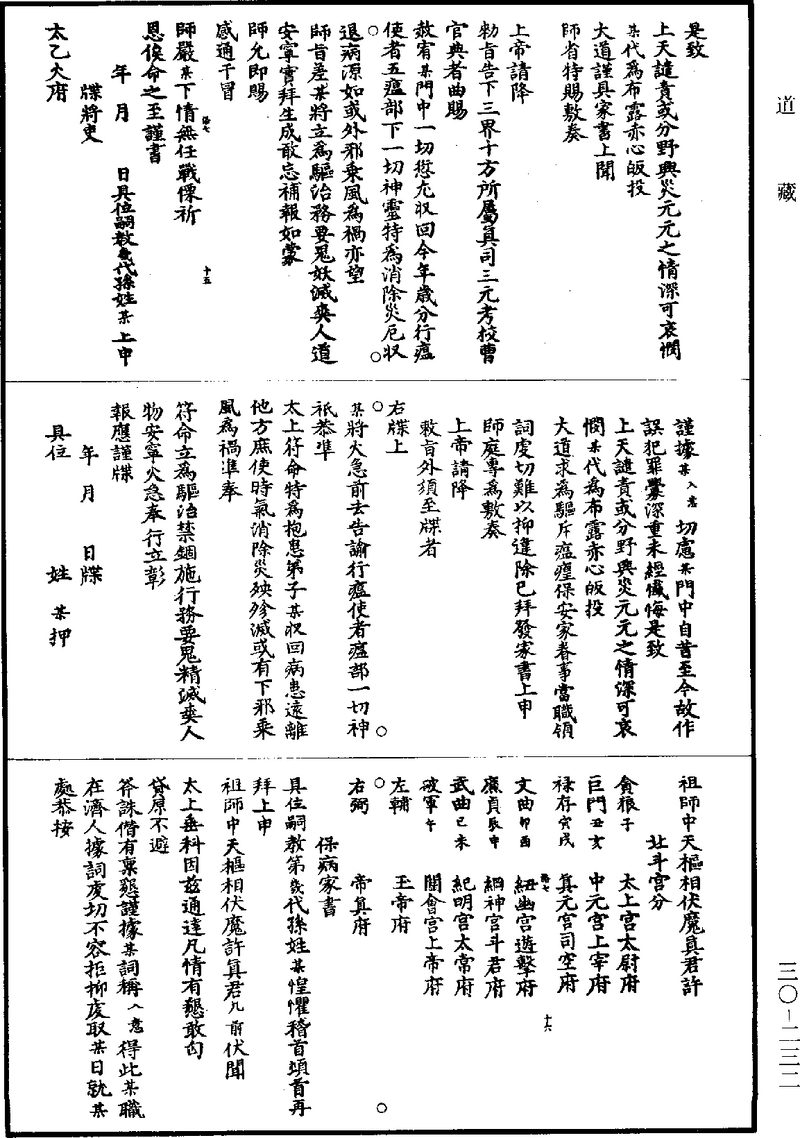 道藏
是致
上天譴責或分野興災元元之情深可哀憫
某代為布露赤心皈投
大道謹具家書上聞
師省特賜敷奏
上帝請降
勑旨告下三界十方所屬真司三元考校曹
官典者曲賜
赦宥某門中一切愆尤収回今年歲分行瘟
使者五瘟部下一切神靈特為消除災厄収
退病源如或外邪乘風為禍亦望
師旨差某將立為驅治務要鬼妖滅爽人道
安寧實拜生成敢忘補報如蒙
師允即賜
感通干冒
師嚴某下情無任戰慄祈
恩俟命之至謹書
年 月 日具位嗣教幾代孫姓某上申
牒將吏
太乙大府
謹據某入意切慮某門中自昔至今故作
誤犯罪釁深重未經懺悔是致
上天譴責或分野興災元元之情深可哀
憫某代為布露赤心皈投
大道求為驅斥瘟𤺉保安家眷事當職領
詞虔切難以抑違除已拜發家書上申
師庭專為敷奏
上帝請降
敕旨外須至牒者
右牒上
某將火急前去告諭行瘟使者瘟部一切神
祇恭準
太上符命特為抱患弟子某収回病患遠離
他方庶使時氣消除災殃殄滅或有下邪乘
風為禍準奉
符命立為驅治禁錮施行務要鬼精滅爽人
物安寧火急奉行立彰
報應謹牒
年 月 日牒
具位 姓 某 押
祖師中天樞相伏魔真君許
北斗宮分
貪狼子 太上宮太尉府
巨門丑亥 中元宮上宰府
祿存寅戌 真元宮司空府
文曲卯酉 紐幽宮遊擊府
廉貞辰申 綱神宮斗君府
武曲巳未 紀明宮太常府
破軍午 關會宮上帝府
左輔 玉帝府
右弼 帝真府
保病家書
具位嗣教第幾代孫姓某惶懼稽首頓首再
拜上申
祖師中天樞相伏魔許真君几前伏聞
太上垂科因茲通達凡情有懇敢匄
貸原不避
答誅僭有稟懇謹據某詞稱入意得此某職
在濟人據詞虔切不容拒抑虔取某日就某
處恭按
三〇-二三二